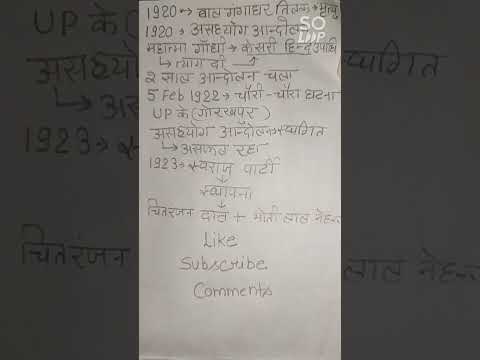 1920 → बाल गंगाधर तिलक → मृत्यु
1920 → असहयोग आन्दोलन
महात्मा गाँधी → केसरी हिन्द उपाधि
↳ त्याग दी
2 साल आन्दोलन चला
5 Feb 1922 → चौरी-चौरा घटना
UP के (गोरखपुर)
असहयोग आन्दोलन → स्थगित
↳ असफल रहा
1923 → स्वराज पार्टी
↓
स्थापना
↓
चितरंजन दास + मोती लाल नेहरू
Like
Subscribe
Comments
SO
LOOP